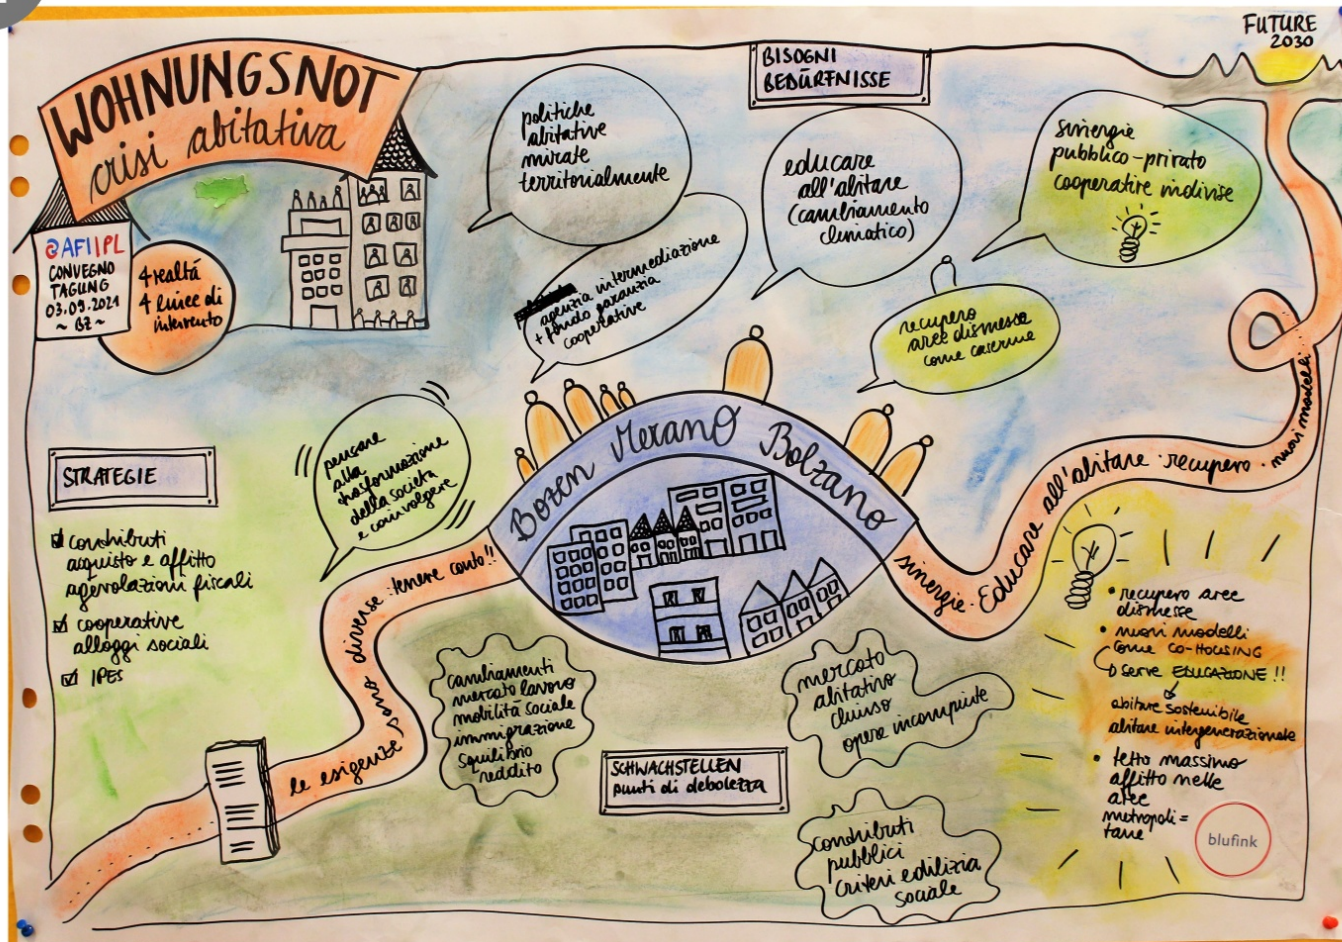 WOHNUNGSNOT
crisi abitativa
AFI IPL
CONVEGNO
TAGUNG
03.09.2021
~ BZ ~
4 realtá
4 linee di
intervento
BISOGNI
BEDÜRFNISSE
FUTURE
2030
politiche
abitative
mirate
territorialmente
agenzia intermediazione
+ fondo garanzia
cooperative
educare
all'abitare
(cambiamento
climatico)
sinergie
pubblico-privato
cooperative indivise
recupero
aree dismesse
come caserme
pensare
alla
trasformazione
della società
e coinvolgere
STRATEGIE
contributi
acquisto e affitto
agevolazioni fiscali
cooperative
alloggi sociali
IPES
Bozen Merano Bolzano
le esigenze sono diverse · tenere conto!!
sinergie · Educare all'abitare · recupero · nuovi modelli
cambiamenti
mercato lavoro
mobilità sociale
immigrazione
squilibrio
reddito
mercato
abitativo
chiuso
opere incompiute
SCHWACHSTELLEN
punti di debolezza
contributi
pubblici
criteri edilizia
sociale
• recupero aree
dismesse
• nuovi modelli
come CO-HOUSING
serve EDUCAZIONE !!
abitare sostenibile
abitare intergenerazionale
• tetto massimo
affitto nelle
aree
metropoli =
tane
blufink